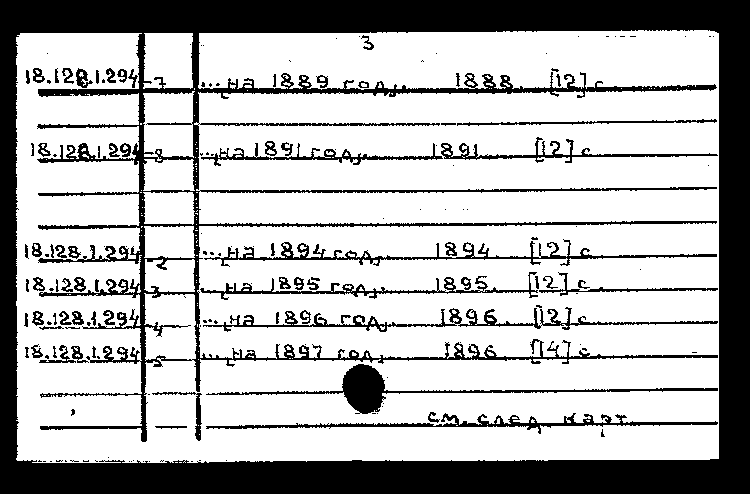 3
18.128.1.294-7 ...[на 1889 год]. 1888. [12] с.
18.128.1.294-8 ...[на 1891 год]. 1891. [12] с.
18.128.1.294-2 ...[на 1894 год]. 1894. [12] с.
18.128.1.294-3 ...[на 1895 год]. 1895. [12] с.
18.128.1.294-4 ...[на 1896 год]. 1896. [12] с.
18.128.1.294-5 ...[на 1897 год]. 1896. [14] с.
см. след. карт.